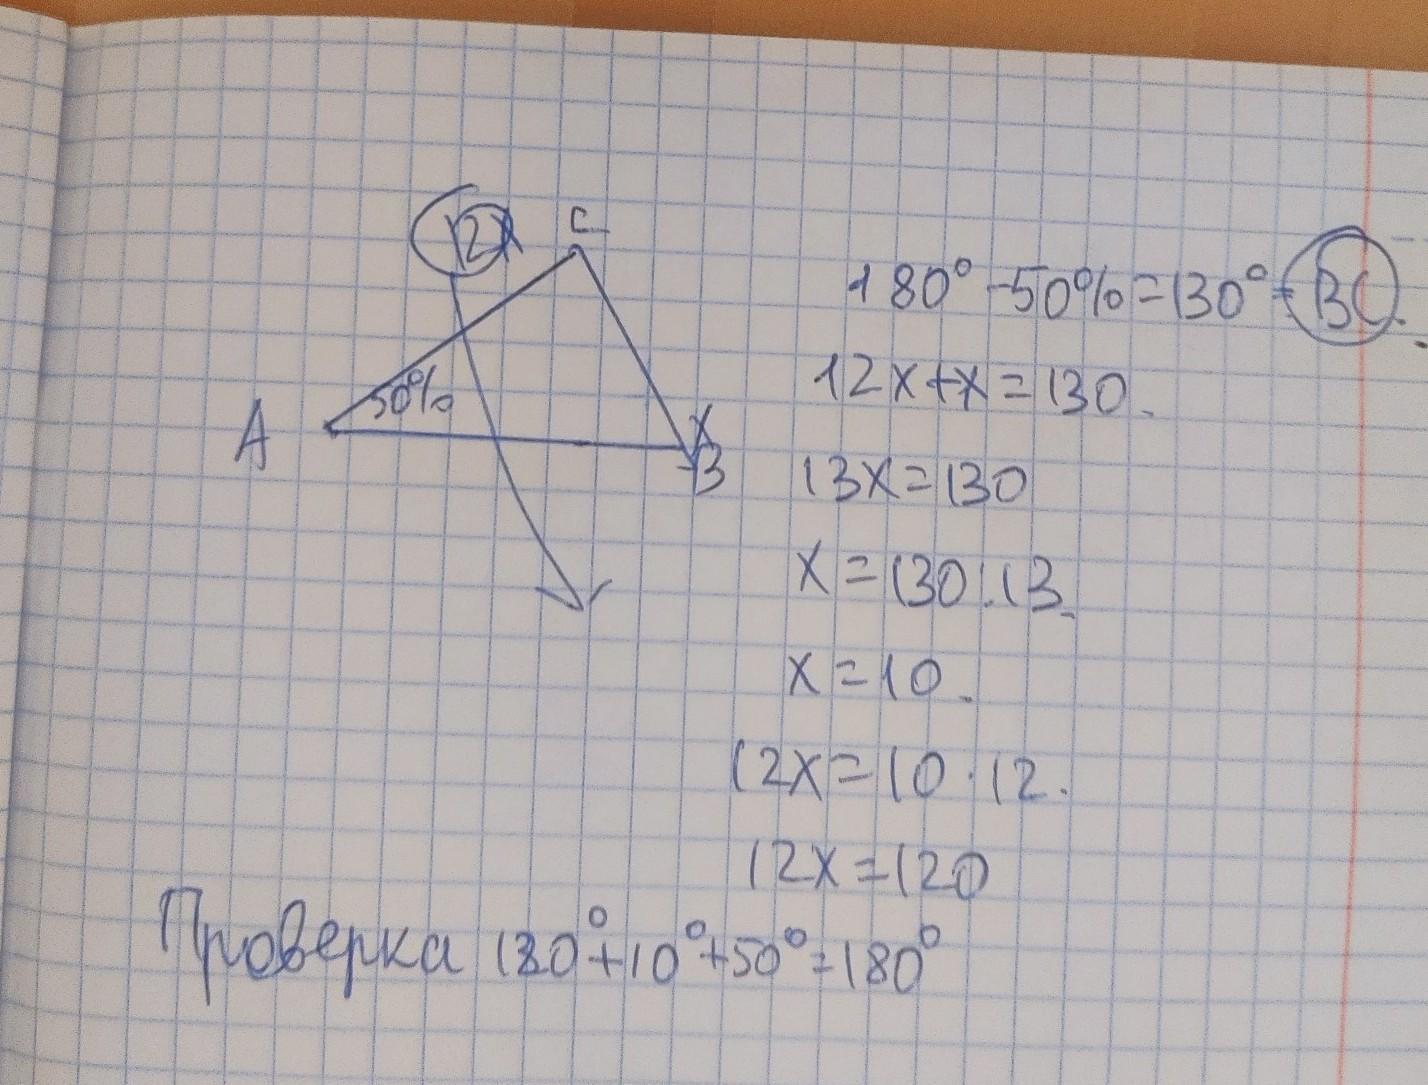 12x C
180° - 50% = 130° = BC.
50%
12x + x = 130.
A
x
B
13x = 130
x = 130 : 13
x = 10.
12x = 10 · 12.
12x = 120
Проверка 120° + 10° + 50° = 180°